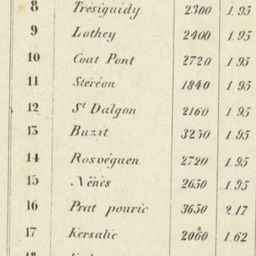 8 Trésiguidy 2300 1.95
9 Lothey 2400 1.95
10 Coat Pont 2720 1.95
11 Stéréon 1840 1.95
12 St Dalgon 2160 1.95
13 Buzit 3250 1.95
14 Rosvéguen 2720 1.95
15 Nénès 2650 1.95
16 Prat pouric 3650 2.17
17 Kersalic 2060 1.62